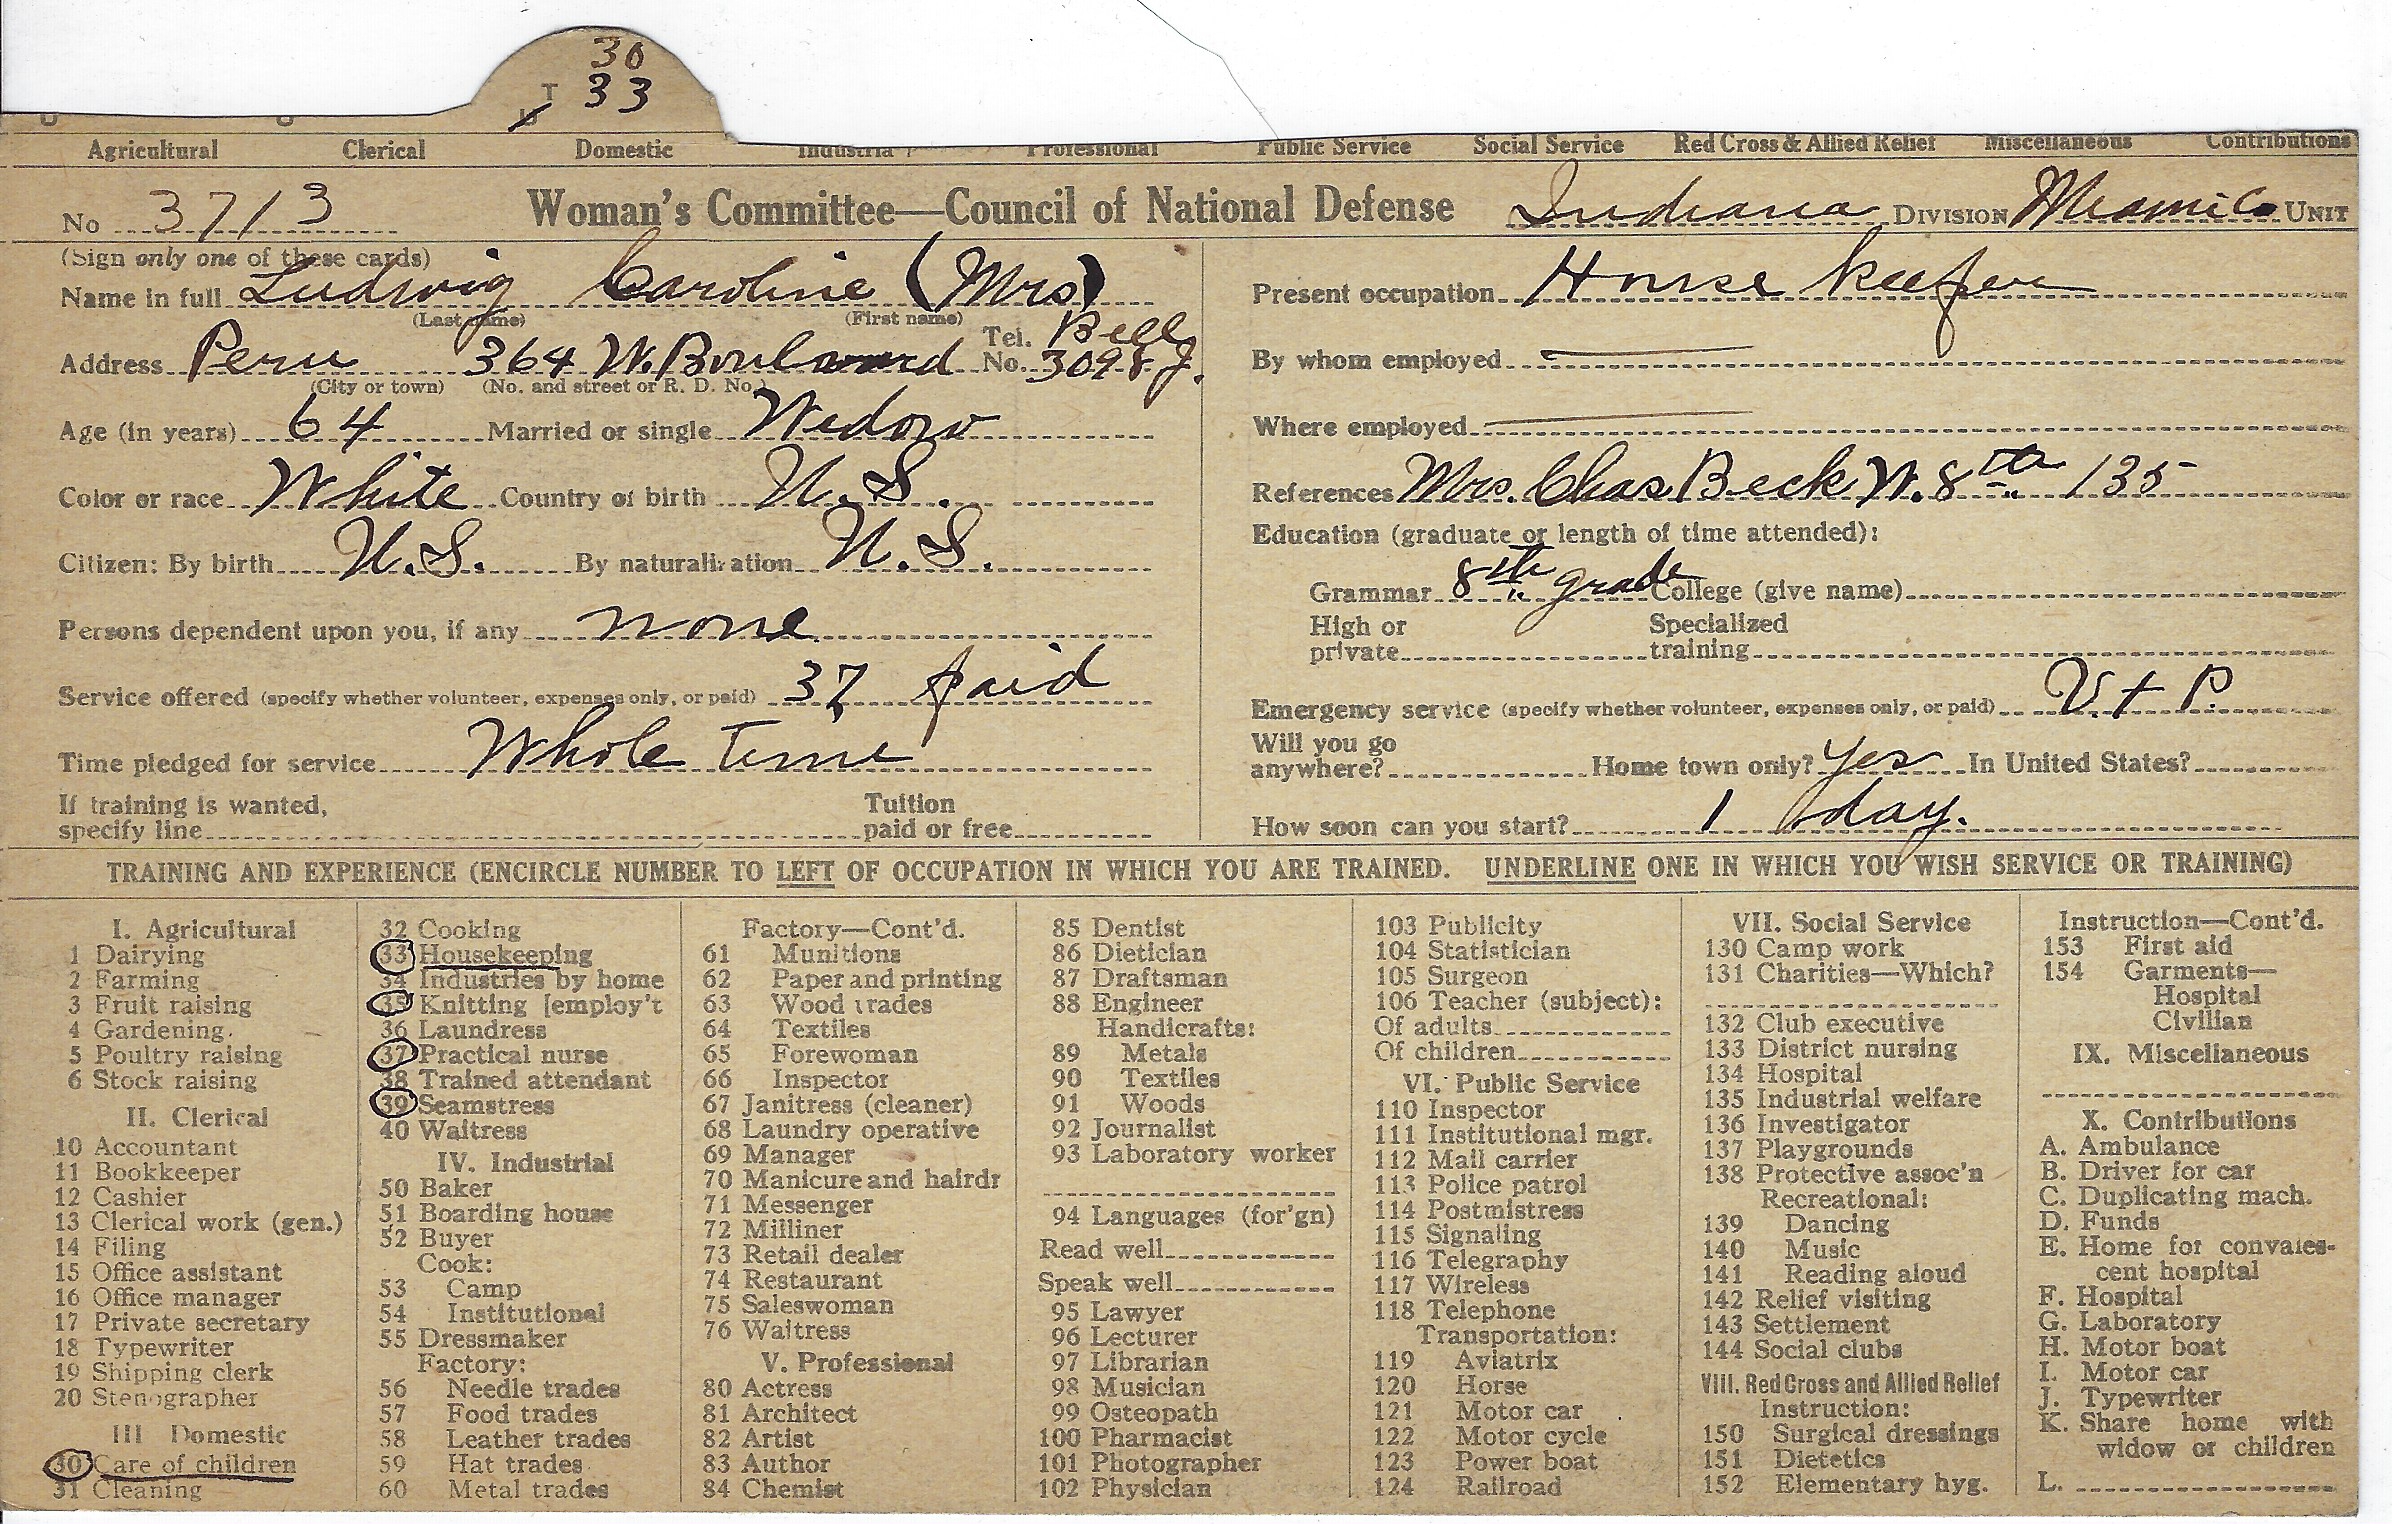 30
T 33
Agricultural Clerical Domestic Industrial Professional Public Service Social Service Red Cross & Allied Relief Miscellaneous Contributions
No 3713 Woman's Committee—Council of National Defense Indiana DIVISION Miami Co. UNIT
(Sign only one of these cards)
Name in full Ludwig Caroline (Mrs)
(Last name) (First name)
Address Peru 364 W. Boulevard Tel. No. Bell 3098 J.
(City or town) (No. and street or R. D. No.)
Age (in years) 64 Married or single Widow
Color or race White Country of birth U.S.
Citizen: By birth U.S. By naturalization U.S.
Persons dependent upon you, if any none
Service offered (specify whether volunteer, expenses only, or paid) 37 paid
Time pledged for service Whole Time
If training is wanted, specify line Tuition paid or free
Present occupation House keeper
By whom employed
Where employed
References Mrs. Chas Beck W. 8th 135
Education (graduate or length of time attended):
Grammar 8th grade College (give name)
High or private Specialized training
Emergency service (specify whether volunteer, expenses only, or paid) V. + P.
Will you go anywhere? Home town only? Yes In United States?
How soon can you start? 1 day.
TRAINING AND EXPERIENCE (ENCIRCLE NUMBER TO LEFT OF OCCUPATION IN WHICH YOU ARE TRAINED. UNDERLINE ONE IN WHICH YOU WISH SERVICE OR TRAINING)
I. Agricultural
1 Dairying
2 Farming
3 Fruit raising
4 Gardening
5 Poultry raising
6 Stock raising
II. Clerical
10 Accountant
11 Bookkeeper
12 Cashier
13 Clerical work (gen.)
14 Filing
15 Office assistant
16 Office manager
17 Private secretary
18 Typewriter
19 Shipping clerk
20 Stenographer
III Domestic
30 Care of children
31 Cleaning
32 Cooking
33 Housekeeping
34 Industries by home
35 Knitting [employ't
36 Laundress
37 Practical nurse
38 Trained attendant
39 Seamstress
40 Waitress
IV. Industrial
50 Baker
51 Boarding house
52 Buyer
Cook:
53 Camp
54 Institutional
55 Dressmaker
Factory:
56 Needle trades
57 Food trades
58 Leather trades
59 Hat trades
60 Metal trades
Factory—Cont'd.
61 Munitions
62 Paper and printing
63 Wood trades
64 Textiles
65 Forewoman
66 Inspector
67 Janitress (cleaner)
68 Laundry operative
69 Manager
70 Manicure and hairdr
71 Messenger
72 Milliner
73 Retail dealer
74 Restaurant
75 Saleswoman
76 Waitress
V. Professional
80 Actress
81 Architect
82 Artist
83 Author
84 Chemist
85 Dentist
86 Dietician
87 Draftsman
88 Engineer
Handicrafts:
89 Metals
90 Textiles
91 Woods
92 Journalist
93 Laboratory worker
94 Languages (for'gn)
Read well
Speak well
95 Lawyer
96 Lecturer
97 Librarian
98 Musician
99 Osteopath
100 Pharmacist
101 Photographer
102 Physician
103 Publicity
104 Statistician
105 Surgeon
106 Teacher (subject):
Of adults
Of children
VI. Public Service
110 Inspector
111 Institutional mgr.
112 Mail carrier
113 Police patrol
114 Postmistress
115 Signaling
116 Telegraphy
117 Wireless
118 Telephone
Transportation:
119 Aviatrix
120 Horse
121 Motor car
122 Motor cycle
123 Power boat
124 Railroad
VII. Social Service
130 Camp work
131 Charities—Which?
132 Club executive
133 District nursing
134 Hospital
135 Industrial welfare
136 Investigator
137 Playgrounds
138 Protective assoc'n
Recreational:
139 Dancing
140 Music
141 Reading aloud
142 Relief visiting
143 Settlement
144 Social clubs
VIII. Red Cross and Allied Relief
Instruction:
150 Surgical dressings
151 Dietetics
152 Elementary hyg.
Instruction—Cont'd.
153 First aid
154 Garments—
Hospital
Civilian
IX. Miscellaneous
X. Contributions
A. Ambulance
B. Driver for car
C. Duplicating mach.
D. Funds
E. Home for convales-
cent hospital
F. Hospital
G. Laboratory
H. Motor boat
I. Motor car
J. Typewriter
K. Share home with
widow or children
L.